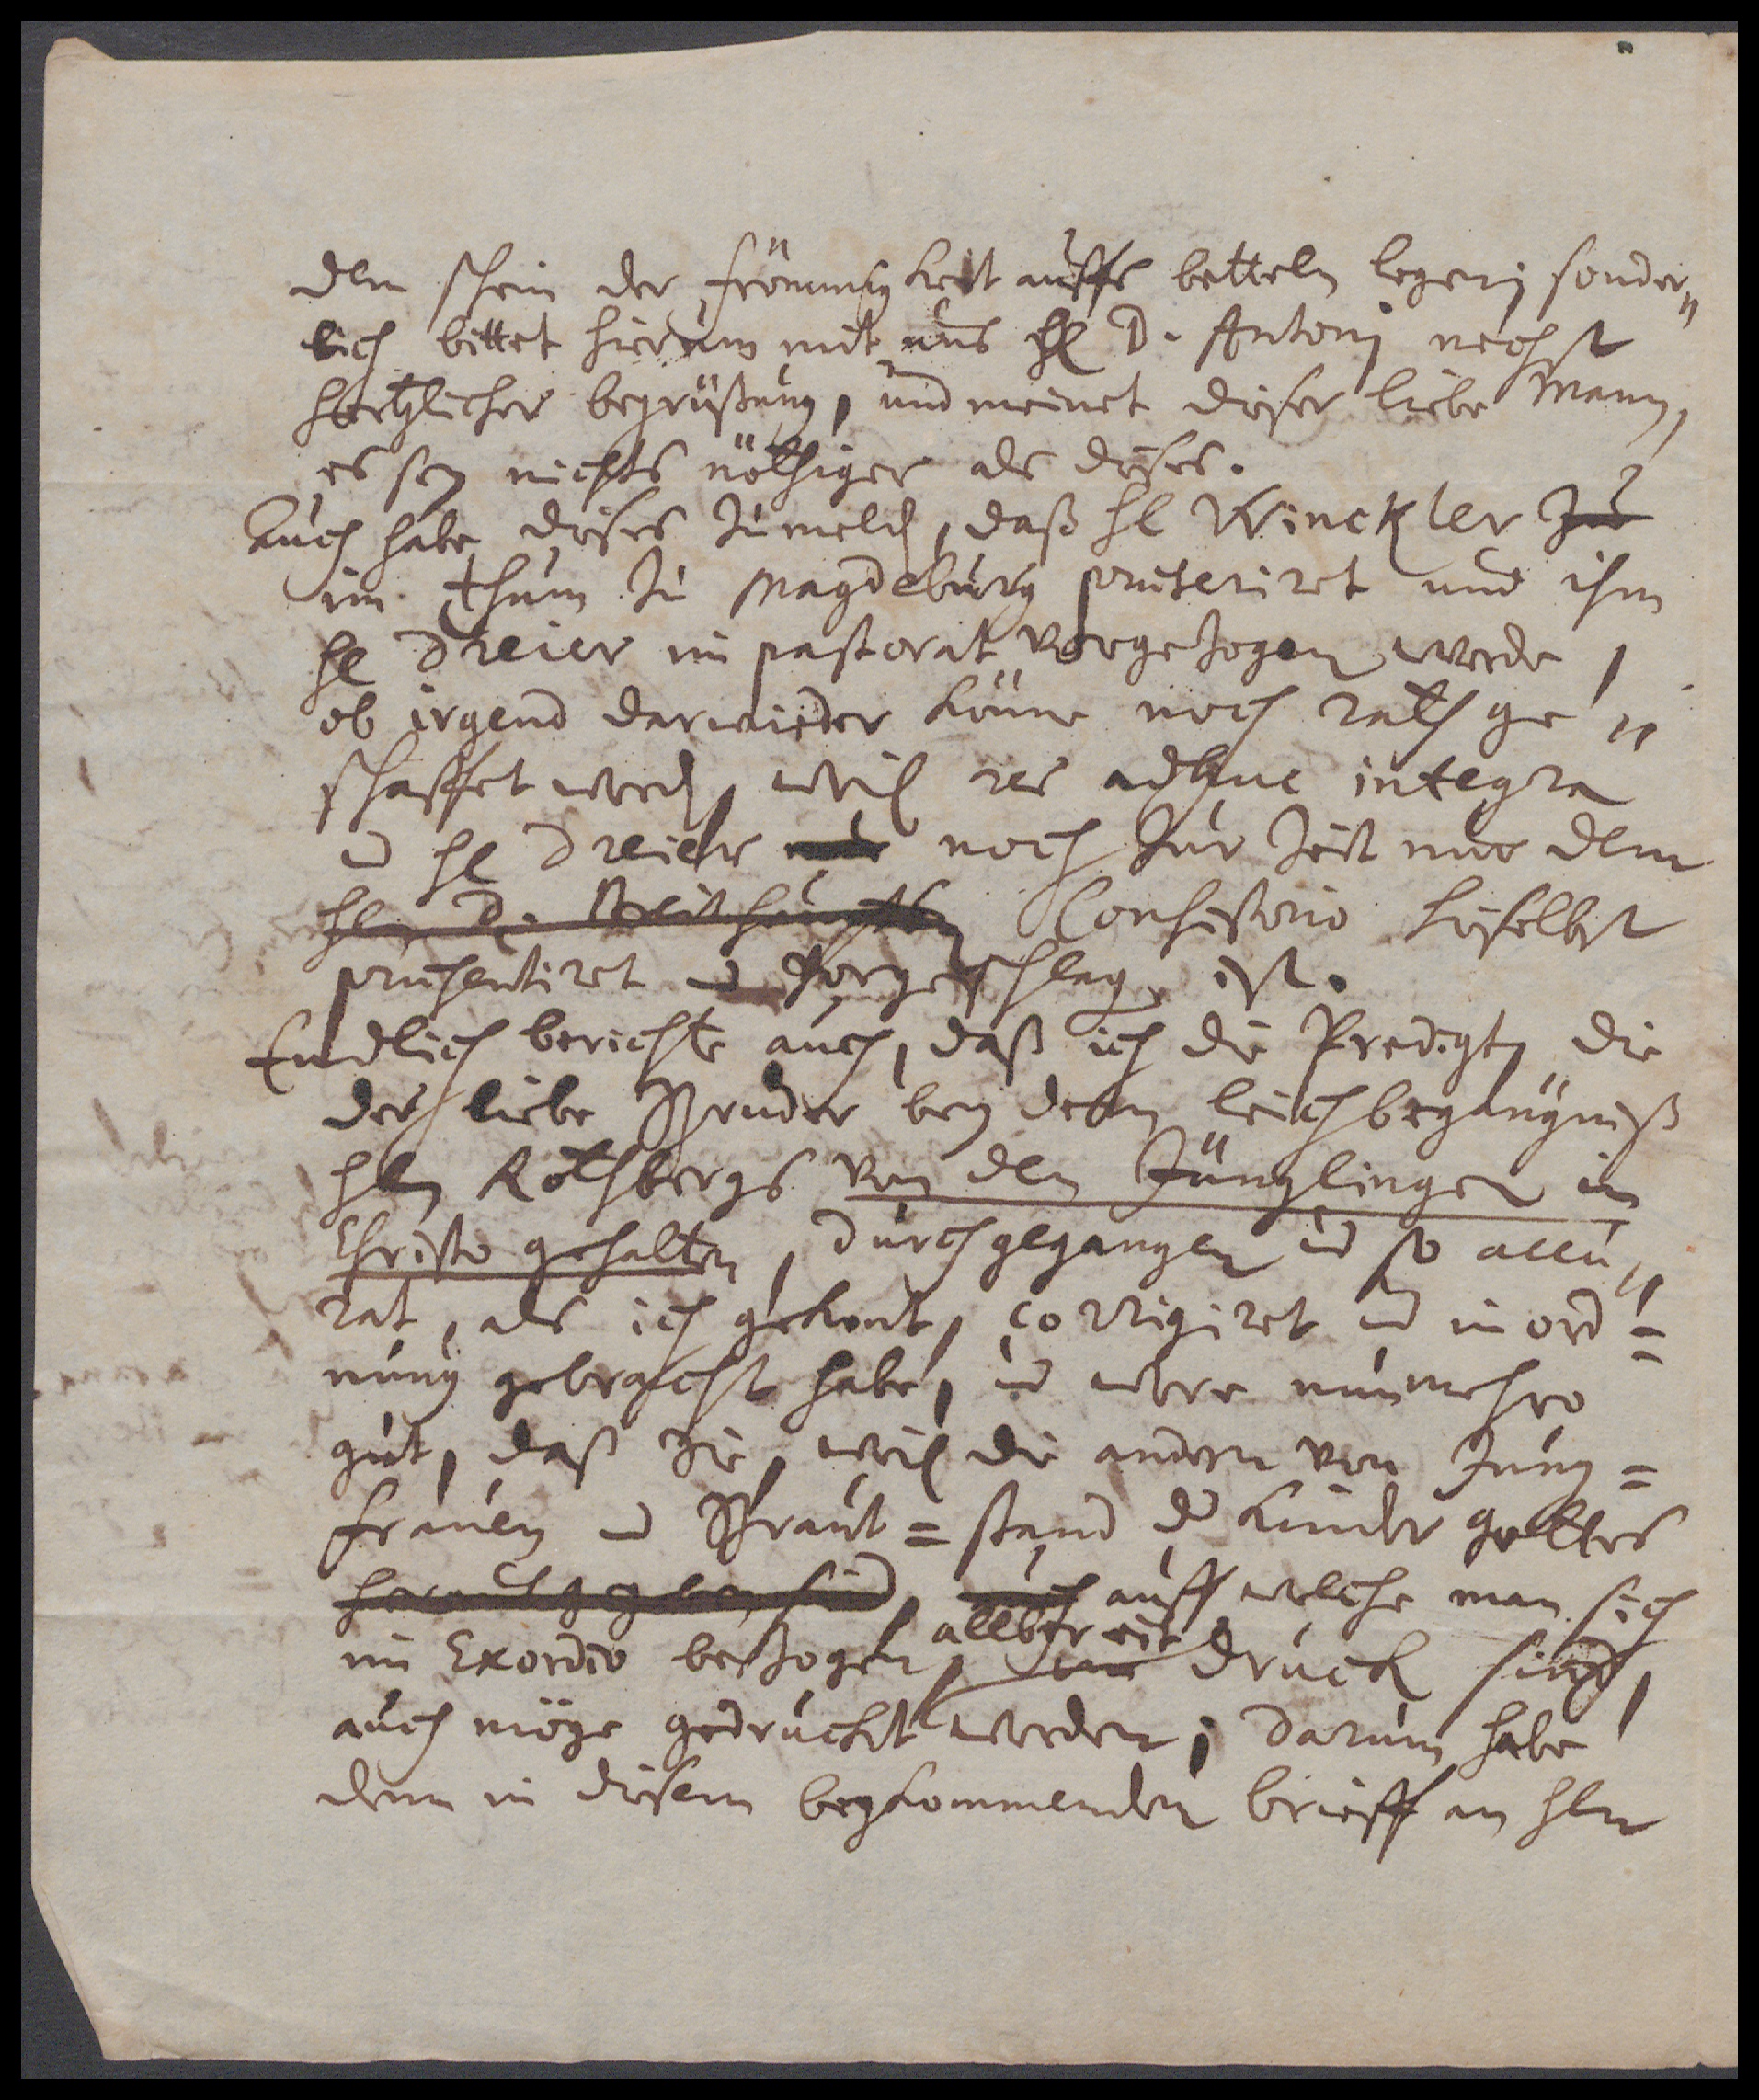 dem schein der frömmigkeit auffs betteln legen; sonder„
lich bittet hierum mit uns HE D. Antonj nechst
hertzlicher begrüßung, und meinet dieser liebe Mann,
es sey nichts nöthiger als dieses.
Auch habe dieses zu meld, daß HE Winckler zu
im thum zu Magdeburg præteriret und ihm
HE Dreier im pastorat vorgezogen werde,
ob irgend darwieder könne noch rath ge„
schaffet werd, weil res adhuc integra
u HE Dreier noch zur Zeit nur dem
HEn D. Breithaupten Consistorio hieselbst
præsentiret u vorgeschlag. ist.
Endlich berichte auch, daß ich die Predigt, die
der liebe Bruder bey dem leichbegängniß
HEn Rothbergs von den Jünglingen in
Christo gehalten, durchgegangen und so accu„
rat, als ich gekont, corrigiret und in ord=
nung gebracht habe, und were nunmehro
gut, daß sie, weil die andern von Jung=
frauen u Braut=stand der Kinder gottes
herausgegeben sind, auch auff welche man sich
im Exordio bezogen, allbereit im druck sind,
auch möge gedruckt werden; darum habe
denn in diesem beykommenden brieff an HEn